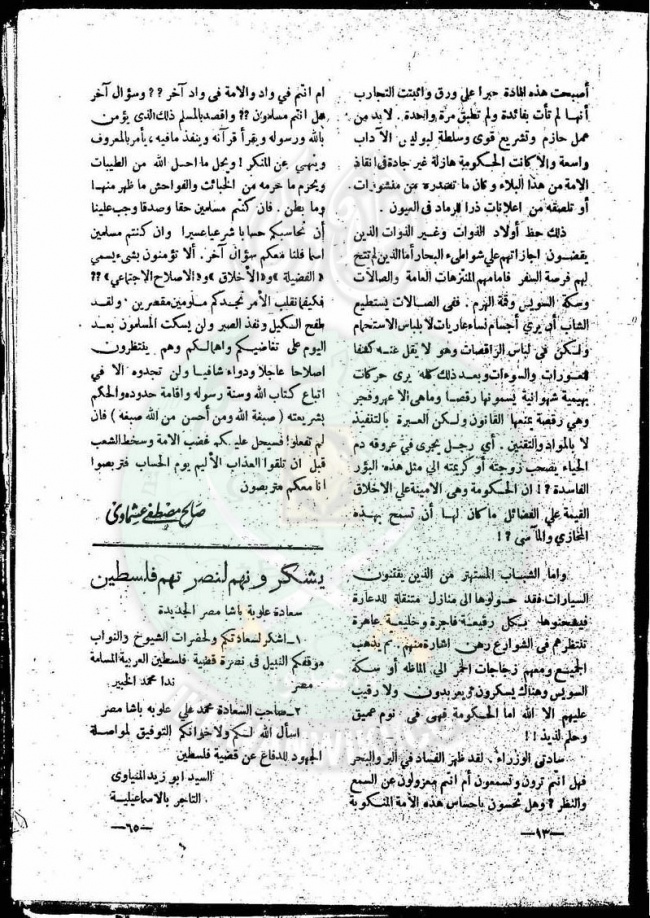 أصبحت هذه المادة حبرا على ورق واثبتت التجارب
أنها لم تأت بفائدة ولم تطبق مرة واحدة . لا بد من
عمل حازم وتشريع قوى وسلطة لبوليس الآداب
واسعة والا كانت الحكومة هازلة غير جادة فى انقاذ
الامة من هذا البلاء وكان ما تصدره من منشورات
أو تلصقه من اعلانات ذرا للرماد فى العيون .
ذلك حظ أولاد الذوات وغير الذوات الذين
يقضون اجازاتهم على شواطىء البحار أما الذين لم تتح
لهم فرصة السفر فامامهم المنتزهات العامة والصالات
وسكة السويس وقمة الهرم . ففى الصالات يستطيع
الشاب أن يرى أجسام نساء عاريات لا بلباس الاستحمام
ولكن في لباس الراقصات وهو لا يقل عنه كشفا
للعورات والسوءات وبعد ذلك كله يرى حركات
بهيمية شهوانية يسمونها رقصا وماهى الا عهر وفجر
وهى رقصة يمنعها القانون ولكن العبرة بالتنفيذ
لا بالمواد والتقنين . أي رجل يجرى فى عروقه دم
الحياء يصحب زوجته أو كريمته الي مثل هذه البؤر
الفاسدة ?! ان الحكومة وهى الامينة علي الاخلاق
القيمة علي الفضائل ما كان لها أن تسمح بهذه
المخازي والمآسى ?!
واما الشباب المستهتر من الذين يقتنون
السيارات فقد حولوها الى منازل متنقلة للدعارة
فيشحنوها بكل رقيعة فاجرة وخليعة عاهرة
تنتظرهم فى الشوارع رهن اشارة منهم . ثم يذهب
الجميع ومعهم زجاجات الخمر الي الماظه أو سكة
السويس وهناك يسكرون ويعربدون ولا رقيب
عليهم الا الله اما الحكومة فهى فى نوم عميق
وحلم لذيذ !!
سادتى الوزراء . لقد ظهر الفساد في البر والبحر
فهل انتم ترون وتسمعون أم انتم معزولون عن السمع
والنظر ? وهل تحسون باحساس هذه الأمة المنكوبة
—١٣—
ام انتم في واد والامة فى واد آخر ?? وسؤال آخر
هل انتم مسلمون ?? واقصد بالمسلم ذلك الذى يؤمن
بالله ورسوله ويقرأ قرآنه وينفذ مافيه ، يأمر بالمعروف
وينهي عن المنكر ! ويحل ما احل الله من الطيبات
ويحرم ما حرمه من الخبائث والفواحش ما ظهر منها
وما بطن . فان كنتم مسلمين حقا وصدقا وجب علينا
أن نحاسبكم حسابا شرعيا عسيرا وان كنتم مسلمين
اسما فلنا معكم سؤال آخر . ألا تؤمنون بشىء يسمي
« الفضيلة » و« الأخلاق » و« الاصلاح الاجتماعي » ??
فكيفما نقلب الأمر نجدكم ملومين مقصرين . ولقد
طفح الكيل ونفذ الصبر ولن يسكت المسلمون بعد
اليوم على تغاضيكم واهمالكم وهم ينتظرون
اصلاحا عاجلا ودواء شافيا ولن تجدوه الا في
اتباع كتاب الله وسنة رسوله واقامة حدوده والحكم
بشريعته ( صبغة الله ومن أحسن من الله صبغة ) فان
لم تفعلوا فسيحل عليكم غضب الامة وسخط الشعب
قبل ان تلقوا العذاب الأليم يوم الحساب فتربصوا
انا معكم متربصون
صالح مصطفى عشماوى
يشكرونهم لنصرتهم فلسطين
سعادة علوبة باشا مصر الجديدة
١— اشكر لسعادتكم ولحضرات الشيوخ والنواب
موقفكم النبيل فى نصرة قضية فلسطين العربية المسلمة
مصر ندا محمد الخبير
٢— صاحب السعادة محمد على علوبه باشا مصر
اسأل الله لكم ولاخوانكم التوفيق لمواصلة
الجهود للدفاع عن قضية فلسطين
السيد ابو زيد المنياوى
التاجر بالاسماعيلية
—٦٥—